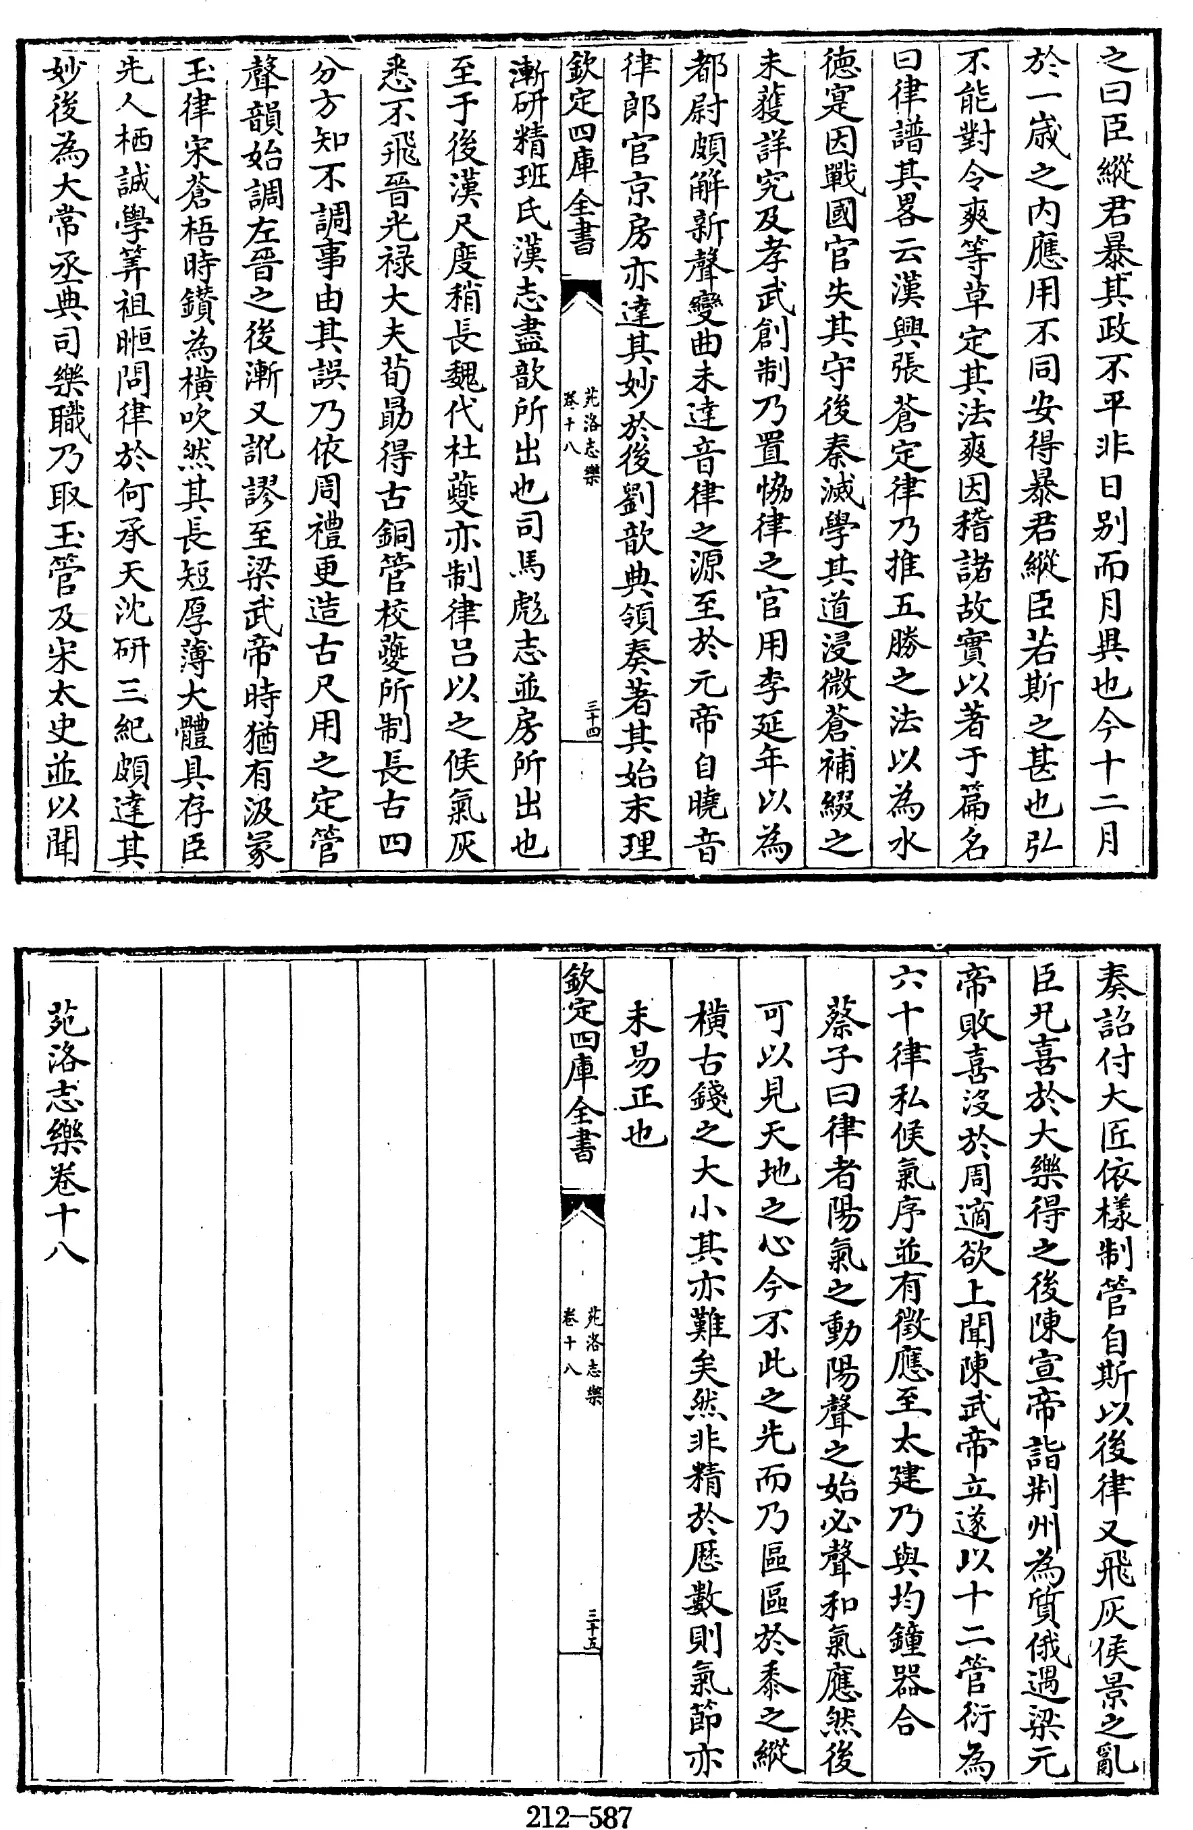 之曰臣縱君暴其政不平非日别而月異也今十二月
於一歳之内應用不同安得暴君縱臣若斯之甚也弘
不能對令爽等草定其法爽因稽諸故實以著于篇名
曰律譜其畧云漢興張蒼定律乃推五勝之法以為水
徳寔因戰國官失其守後秦滅學其道浸微蒼補綴之
未獲詳究及孝武創制乃置恊律之官用李延年以為
都尉頗解新聲變曲未達音律之源至於元帝自曉音
律郎官京房亦達其妙於後劉歆典領奏著其始末理
欽定四庫全書
苑洛志樂
卷十八
三十四
漸研精班氏漢志盡歆所出也司馬彪志並房所出也
至于後漢尺度稍長魏代杜夔亦制律吕以之候氣灰
悉不飛晉光禄大夫荀勗得古銅管校夔所制長古四
分方知不調事由其誤乃依周禮更造古尺用之定管
聲韻始調左晉之後漸又訛謬至梁武帝時猶有汲冢
玉律宋蒼梧時鑚為横吹然其長短厚薄大體具存臣
先人栖誠學筭祖暅問律於何承天沈研三紀頗達其
妙後為大常丞典司樂職乃取玉管及宋太史並以聞
奏詔付大匠依樣制管自斯以後律又飛灰侯景之亂
臣兄喜於大樂得之後陳宣帝詣荆州為質俄遇梁元
帝敗喜没於周適欲上聞陳武帝立遂以十二管衍為
六十律私候氣序並有徵應至太建乃與均鐘器合
蔡子曰律者陽氣之動陽聲之始必聲和氣應然後
可以見天地之心今不此之先而乃區區於黍之縱
横古錢之大小其亦難矣然非精於歴數則氣節亦
未易正也
欽定四庫全書
苑洛志樂
卷十八
三十五
苑洛志樂卷十八
212-587